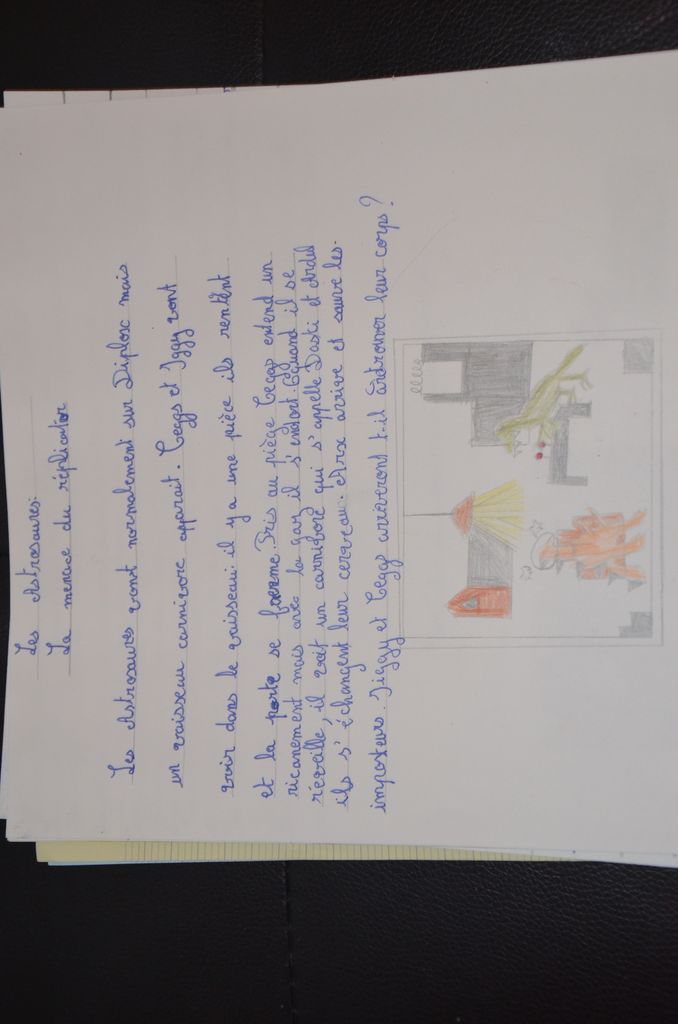 Les Astrosaures:
La menace du réplicator
Les Astrosaures vont normalement sur Diplox mais
un vaisseau carnivore apparait. Teggs et Iggy vont
voir dans le vaisseau: il y a une pièce ils rentrent
et la porte se ferme. Pris au piège Teggs entend un
ricanement mais avec la gaz il s'endort. Quand il se
réveille, il voit un carnivore qui s'appelle Daski et Ardul
ils s'échangent leur cerveau. Arx arrive et sauve les
imposteurs. Iggy et Teggs arriveront t-il à retrouver leur corps?